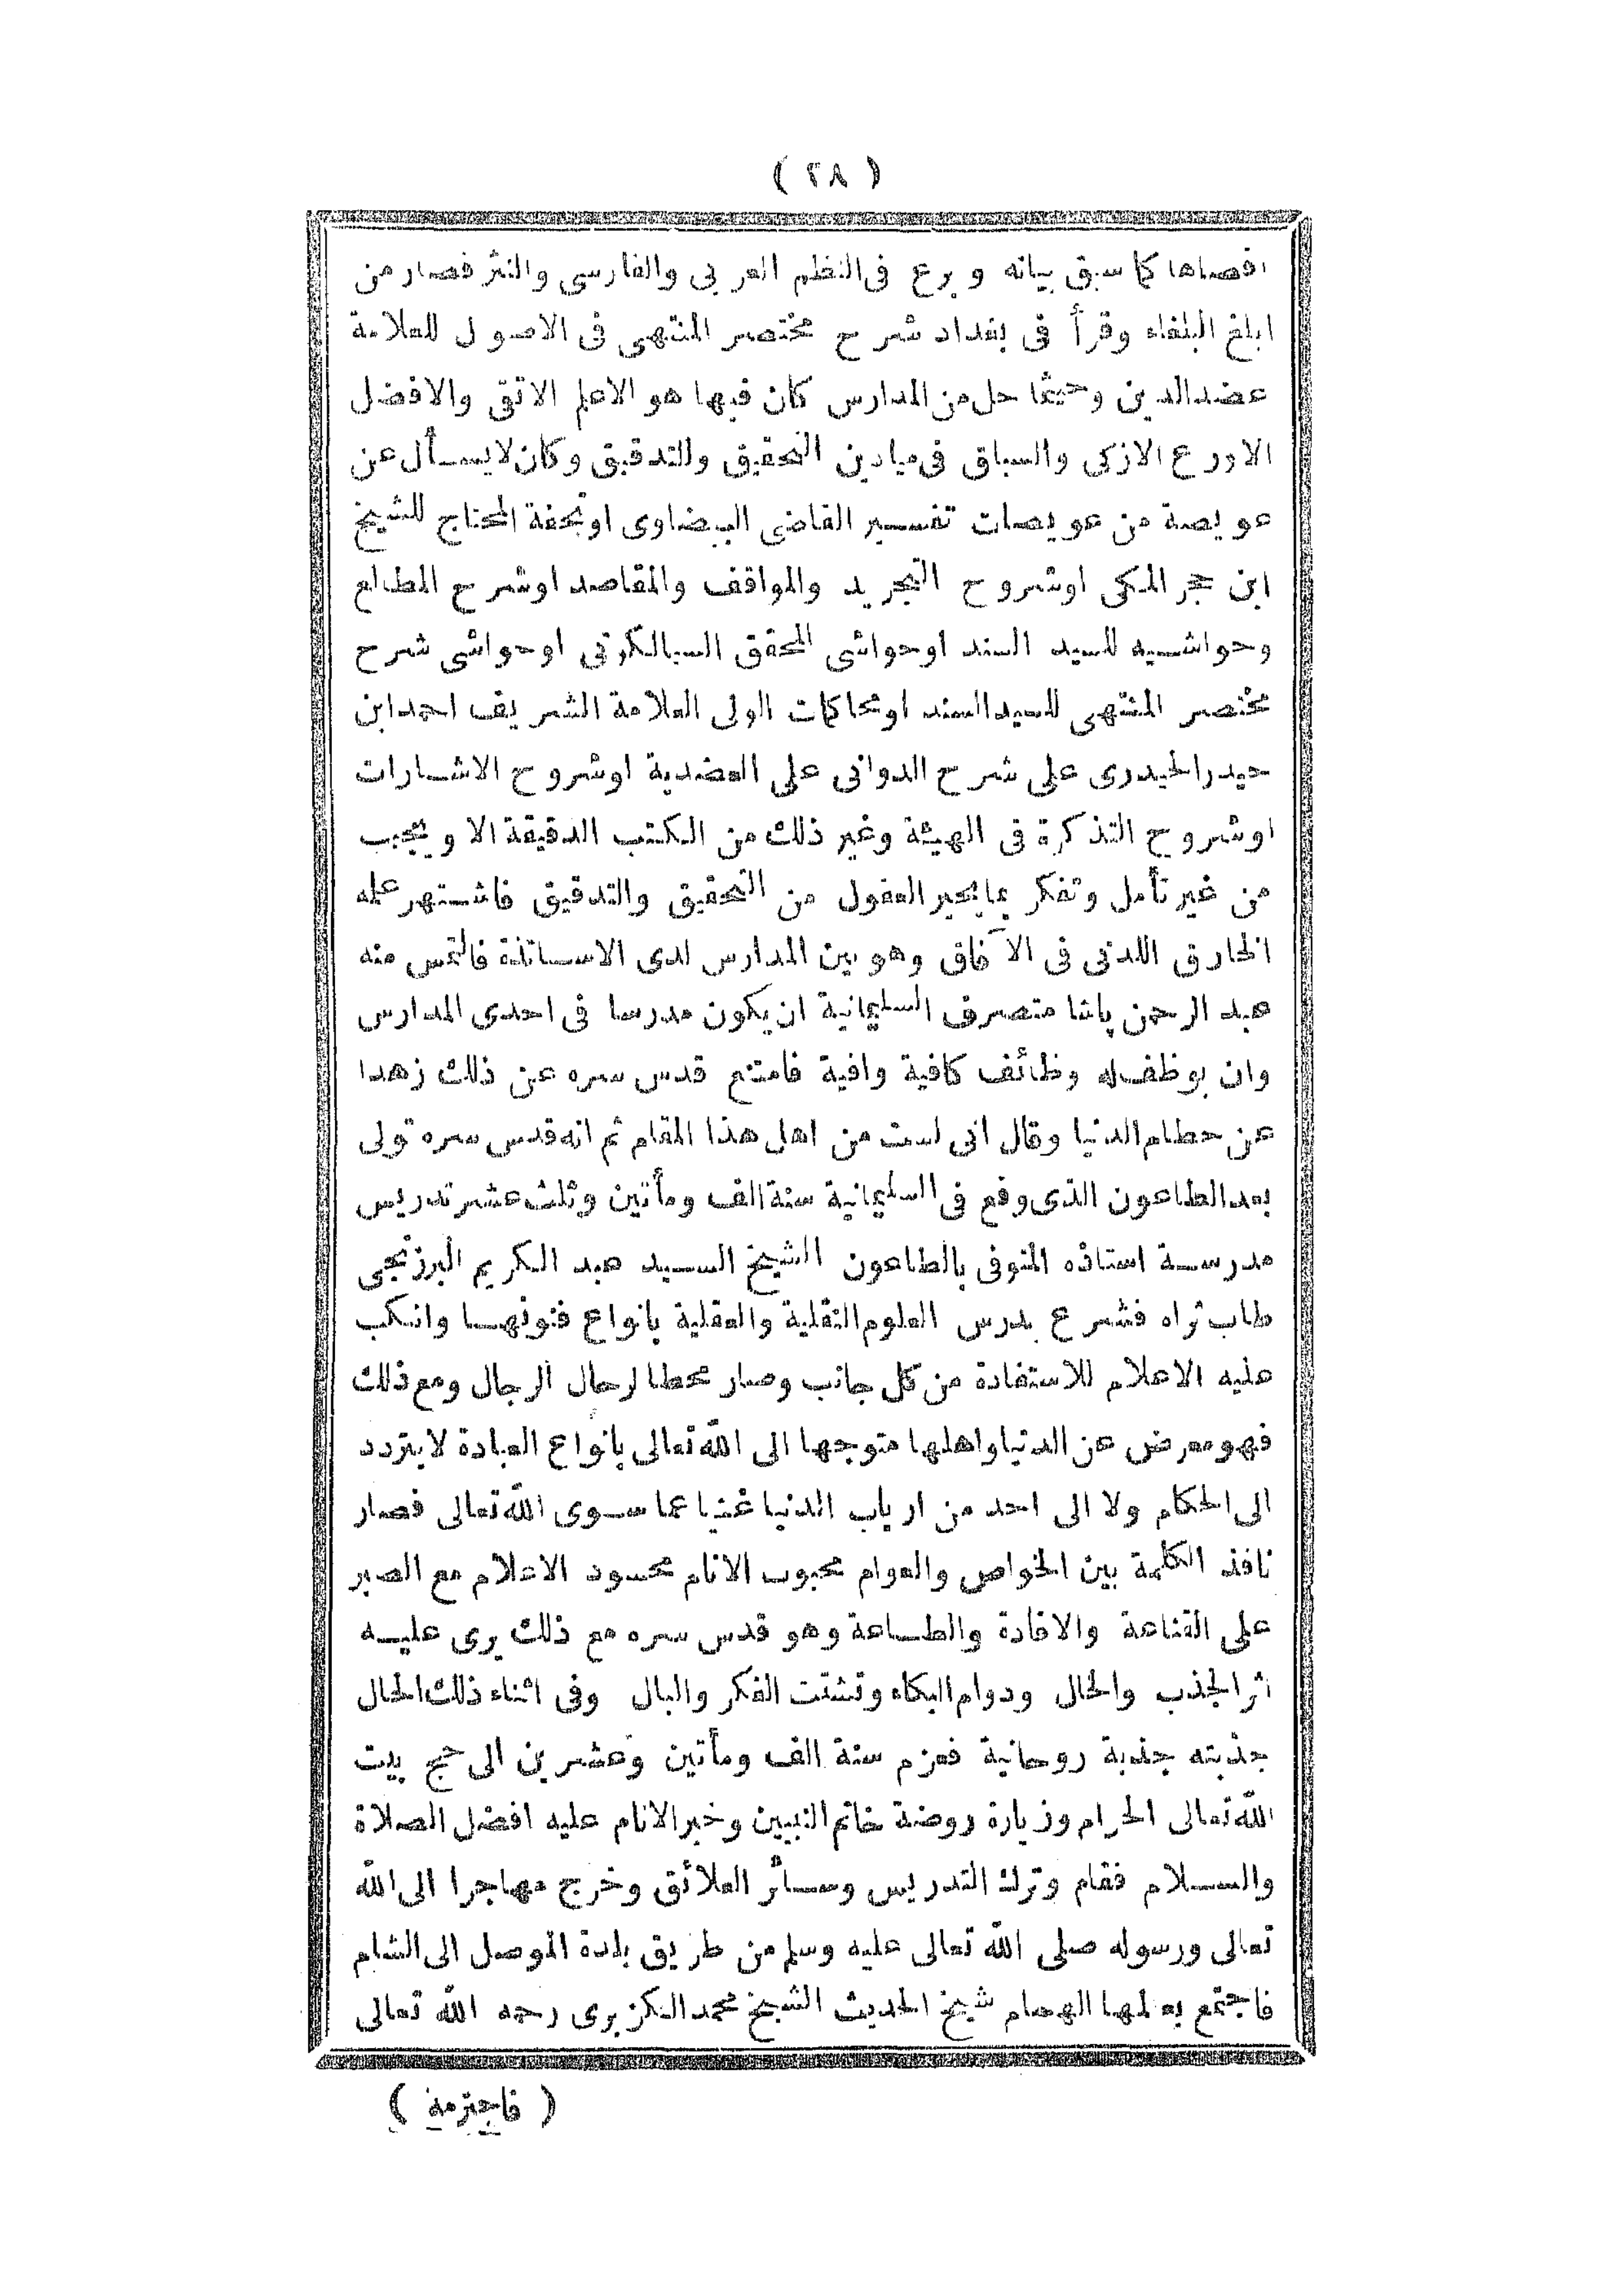 ( ٢٨ )
اقصاها كما سبق بيانه وبرع فى النظم العربى والفارسى والنثر فصار من
ابلغ البلغاء وقرأ فى بغداد شرح مختصر المنتهى فى الاصول للعلامة
عضد الدين وحيثما حل من المدارس كان فيها هو الاعلم الاتقى والافضل
الاورع الازكى والسباق فى ميادين التحقيق والتدقيق وكان لا يسأل عن
عويصة من عويصات تفسير القاضى البيضاوى او تحفة المحتاج للشيخ
ابن حجر المكى او شروح التجريد والمواقف والمقاصد او شرح المطالع
وحواشيه للسيد السند او حواشى المحقق السيالكوتى او حواشى شرح
مختصر المنتهى للسيد السند او محاكمات الولى العلامة الشريف احمد ابن
حيدر الحيدرى على شرح الدوانى على العضدية او شروح الاشارات
او شروح التذكرة فى الهيئة وغير ذلك من الكتب الدقيقة الا ويجيب
من غير تأمل وتفكر بما يحير العقول من التحقيق والتدقيق فاشتهر علمه
الخارق اللدنى فى الآفاق وهو بين المدارس لدى الاساتذة فالتمس منه
عبد الرحمن پاشا متصرف السليمانية ان يكون مدرسا فى احدى المدارس
وان يوظف له وظائف كافية وافية فامتنع قدس سره عن ذلك زهدا
عن حطام الدنيا وقال انى لست من اهل هذا المقام ثم انه قدس سره تولى
بعد الطاعون الذى وقع فى السليمانية سنة الف ومأتين وثلث عشر تدريس
مدرسة استاذه المتوفى بالطاعون الشيخ السيد عبد الكريم البرزنجى
طاب ثراه فشرع يدرس العلوم النقلية والعقلية بانواع فنونها وانكب
عليه الاعلام للاستفادة من كل جانب وصار محطا لرحال الرجال ومع ذلك
فهو معرض عن الدنيا واهلها متوجها الى الله تعالى بانواع العبادة لا يتردد
الى الحكام ولا الى احد من ارباب الدنيا غنيا عما سوى الله تعالى فصار
نافذ الكلمة بين الخواص والعوام محبوب الانام محسود الاعلام مع الصبر
على القناعة والافادة والطاعة وهو قدس سره مع ذلك يرى عليه
اثر الجذب والحال ودوام البكاء وتشتت الفكر والبال وفى اثناء ذلك الحال
جذبته جذبة روحانية فعزم سنة الف ومأتين وعشرين الى حج بيت
الله تعالى الحرام وزيارة روضة خاتم النبيين وخير الانام عليه افضل الصلاة
والسلام فقام وترك التدريس وسائر العلائق وخرج مهاجرا الى الله
تعالى ورسوله صلى الله تعالى عليه وسلم من طريق بلدة الموصل الى الشام
فاجتمع بعالمها الهمام شيخ الحديث الشيخ محمد الكزبرى رحمه الله تعالى
( فاحترمه )